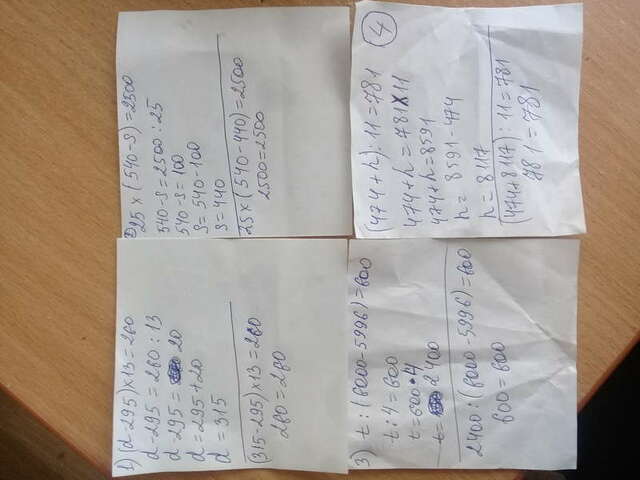 1) (d-295)×13=260
d-295=260:13
d-295=20
d=295+20
d=315
(315-295)×13=260
260=260
2) 25×(540-s)=2500
540-s=2500:25
540-s=100
s=540-100
s=440
25×(540-440)=2500
2500=2500
3) t:(6000-5996)=600
t:4=600
t=600•4
t=2400
2400:(6000-5996)=600
600=600
4
(474+h):11=781
474+h=781×11
474+h=8591
h=8591-474
h=8117
(474+8117):11=781
781=781